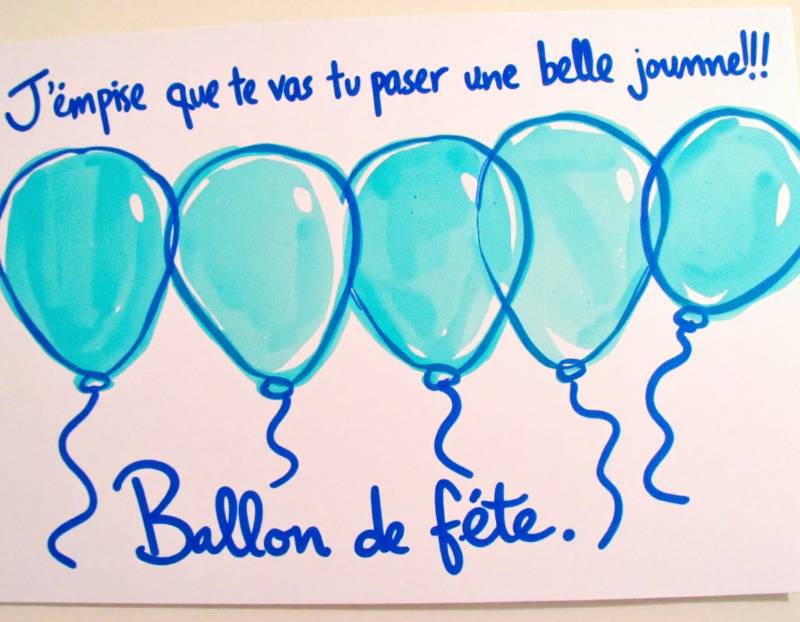 J'ëmpise que te vas tu paser une belle jounne!!!
Ballon de féte.